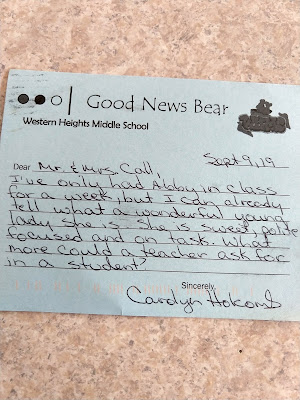 Good News Bear
Western Heights Middle School
Sept 9, 19
Dear Mr. & Mrs. Call,
I've only had Abby in class
for a week, but I can already
tell what a wonderful young
lady she is. She is sweet, polite
focused and on task. What
more could a teacher ask for
in a student?
Sincerely,
Carolyn Holcomb